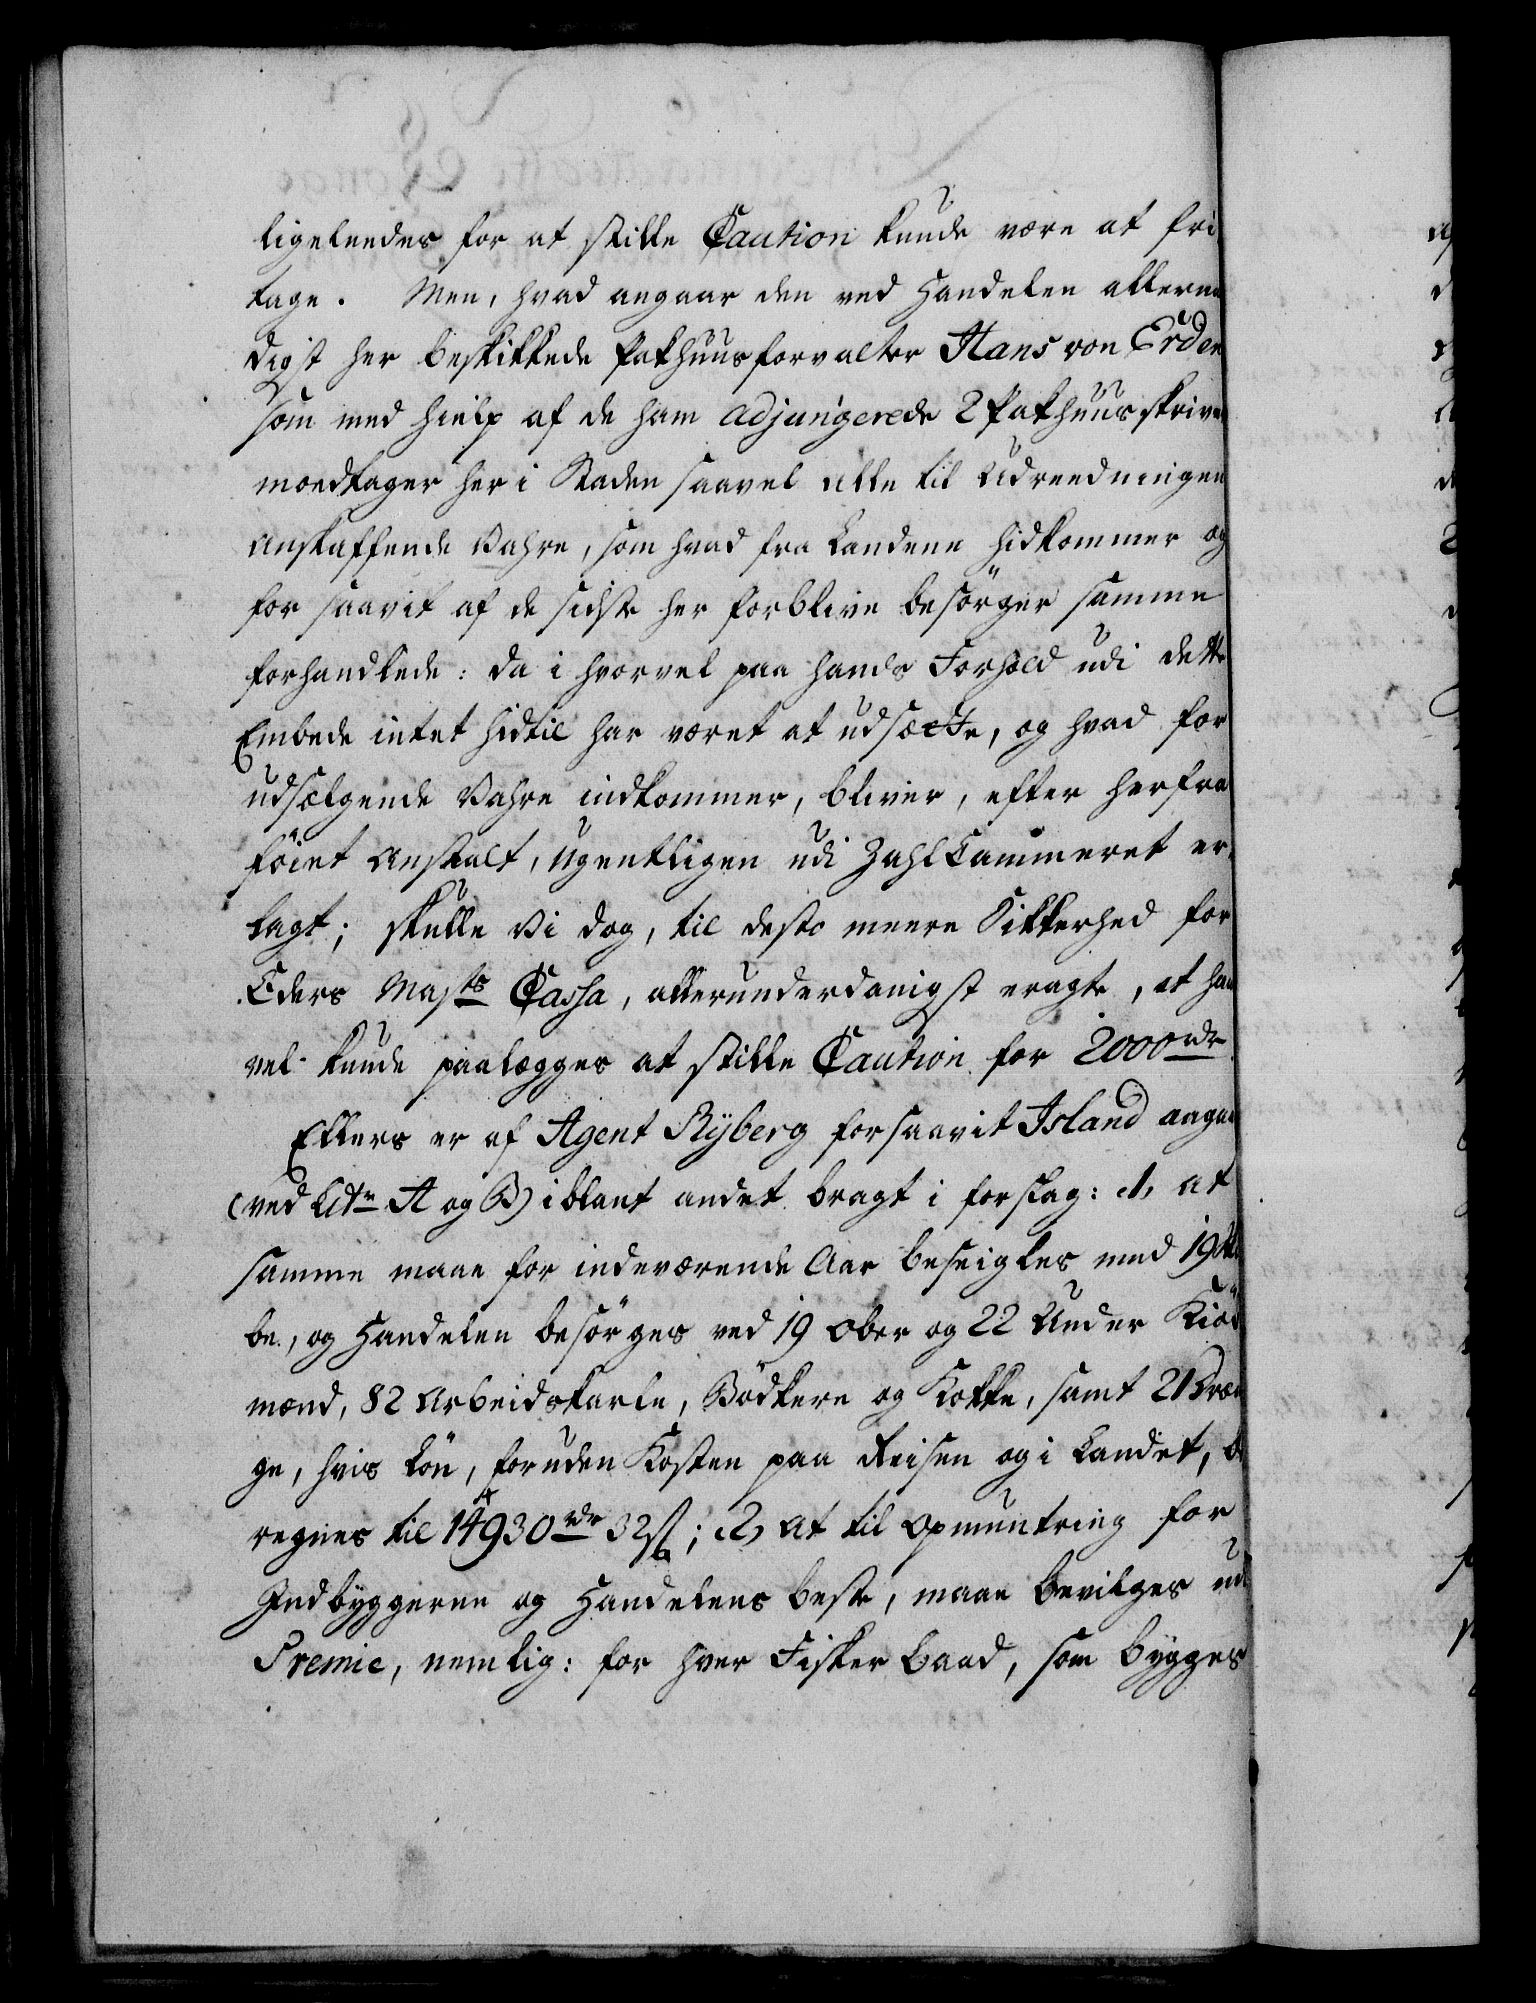 ligeleedes for at stille Caution kunde være at fri
tage. Men, hvad angaar den ved Handelen allerun
digst her beskikkede Pakhuusforvalter Hans von Erden
som med hielp af de ham adjungerede 2 Pakhuusskrive
modtager her i Staden saavel alle til Udreedningen
anskaffende Vahre, som hvad fra Landene hidkommer og
for saavit af de sidste her forblive besörger samme
forhandlede: da i hvorvel paa hands Forhold udi dette
Embede intet hidtil har været at udsætte, og hvad for
udsælgende Vahre indkommer, bliver, efter herfra
föiet Anstalt, ugentligen udi ZahlCammeret er,
lagt; skulle Vi dog, til desto meere Sikkerhed for
Eders Majts Cassa, allerunderdanigst eragte, at han
vel kunde paalægges at stille Caution for 2000 rdr
Ellers er af Agent Ryberg forsaavit Island angaa
(ved Litr A og B) iblant andet bragt i forslag: 1, at
samme maae for indeværende Aar beseigles med 19 Ski
be, og Handelen besörges ved 19 Ober og 22 Under Kiöb
mænd, 82 Arbeidskarle, Bödkere og Kokke, samt 21 Dræn
ge, hvis Lön, foruden Kosten paa Reisen og i Landet, be
regnes til 14930 rdr 32 ß; 2, at til Opmuntring for
Indbyggerne og Handelens beste, maae bevilges ud
Premie, nemlig: for hver Fisker Baad, som bygges